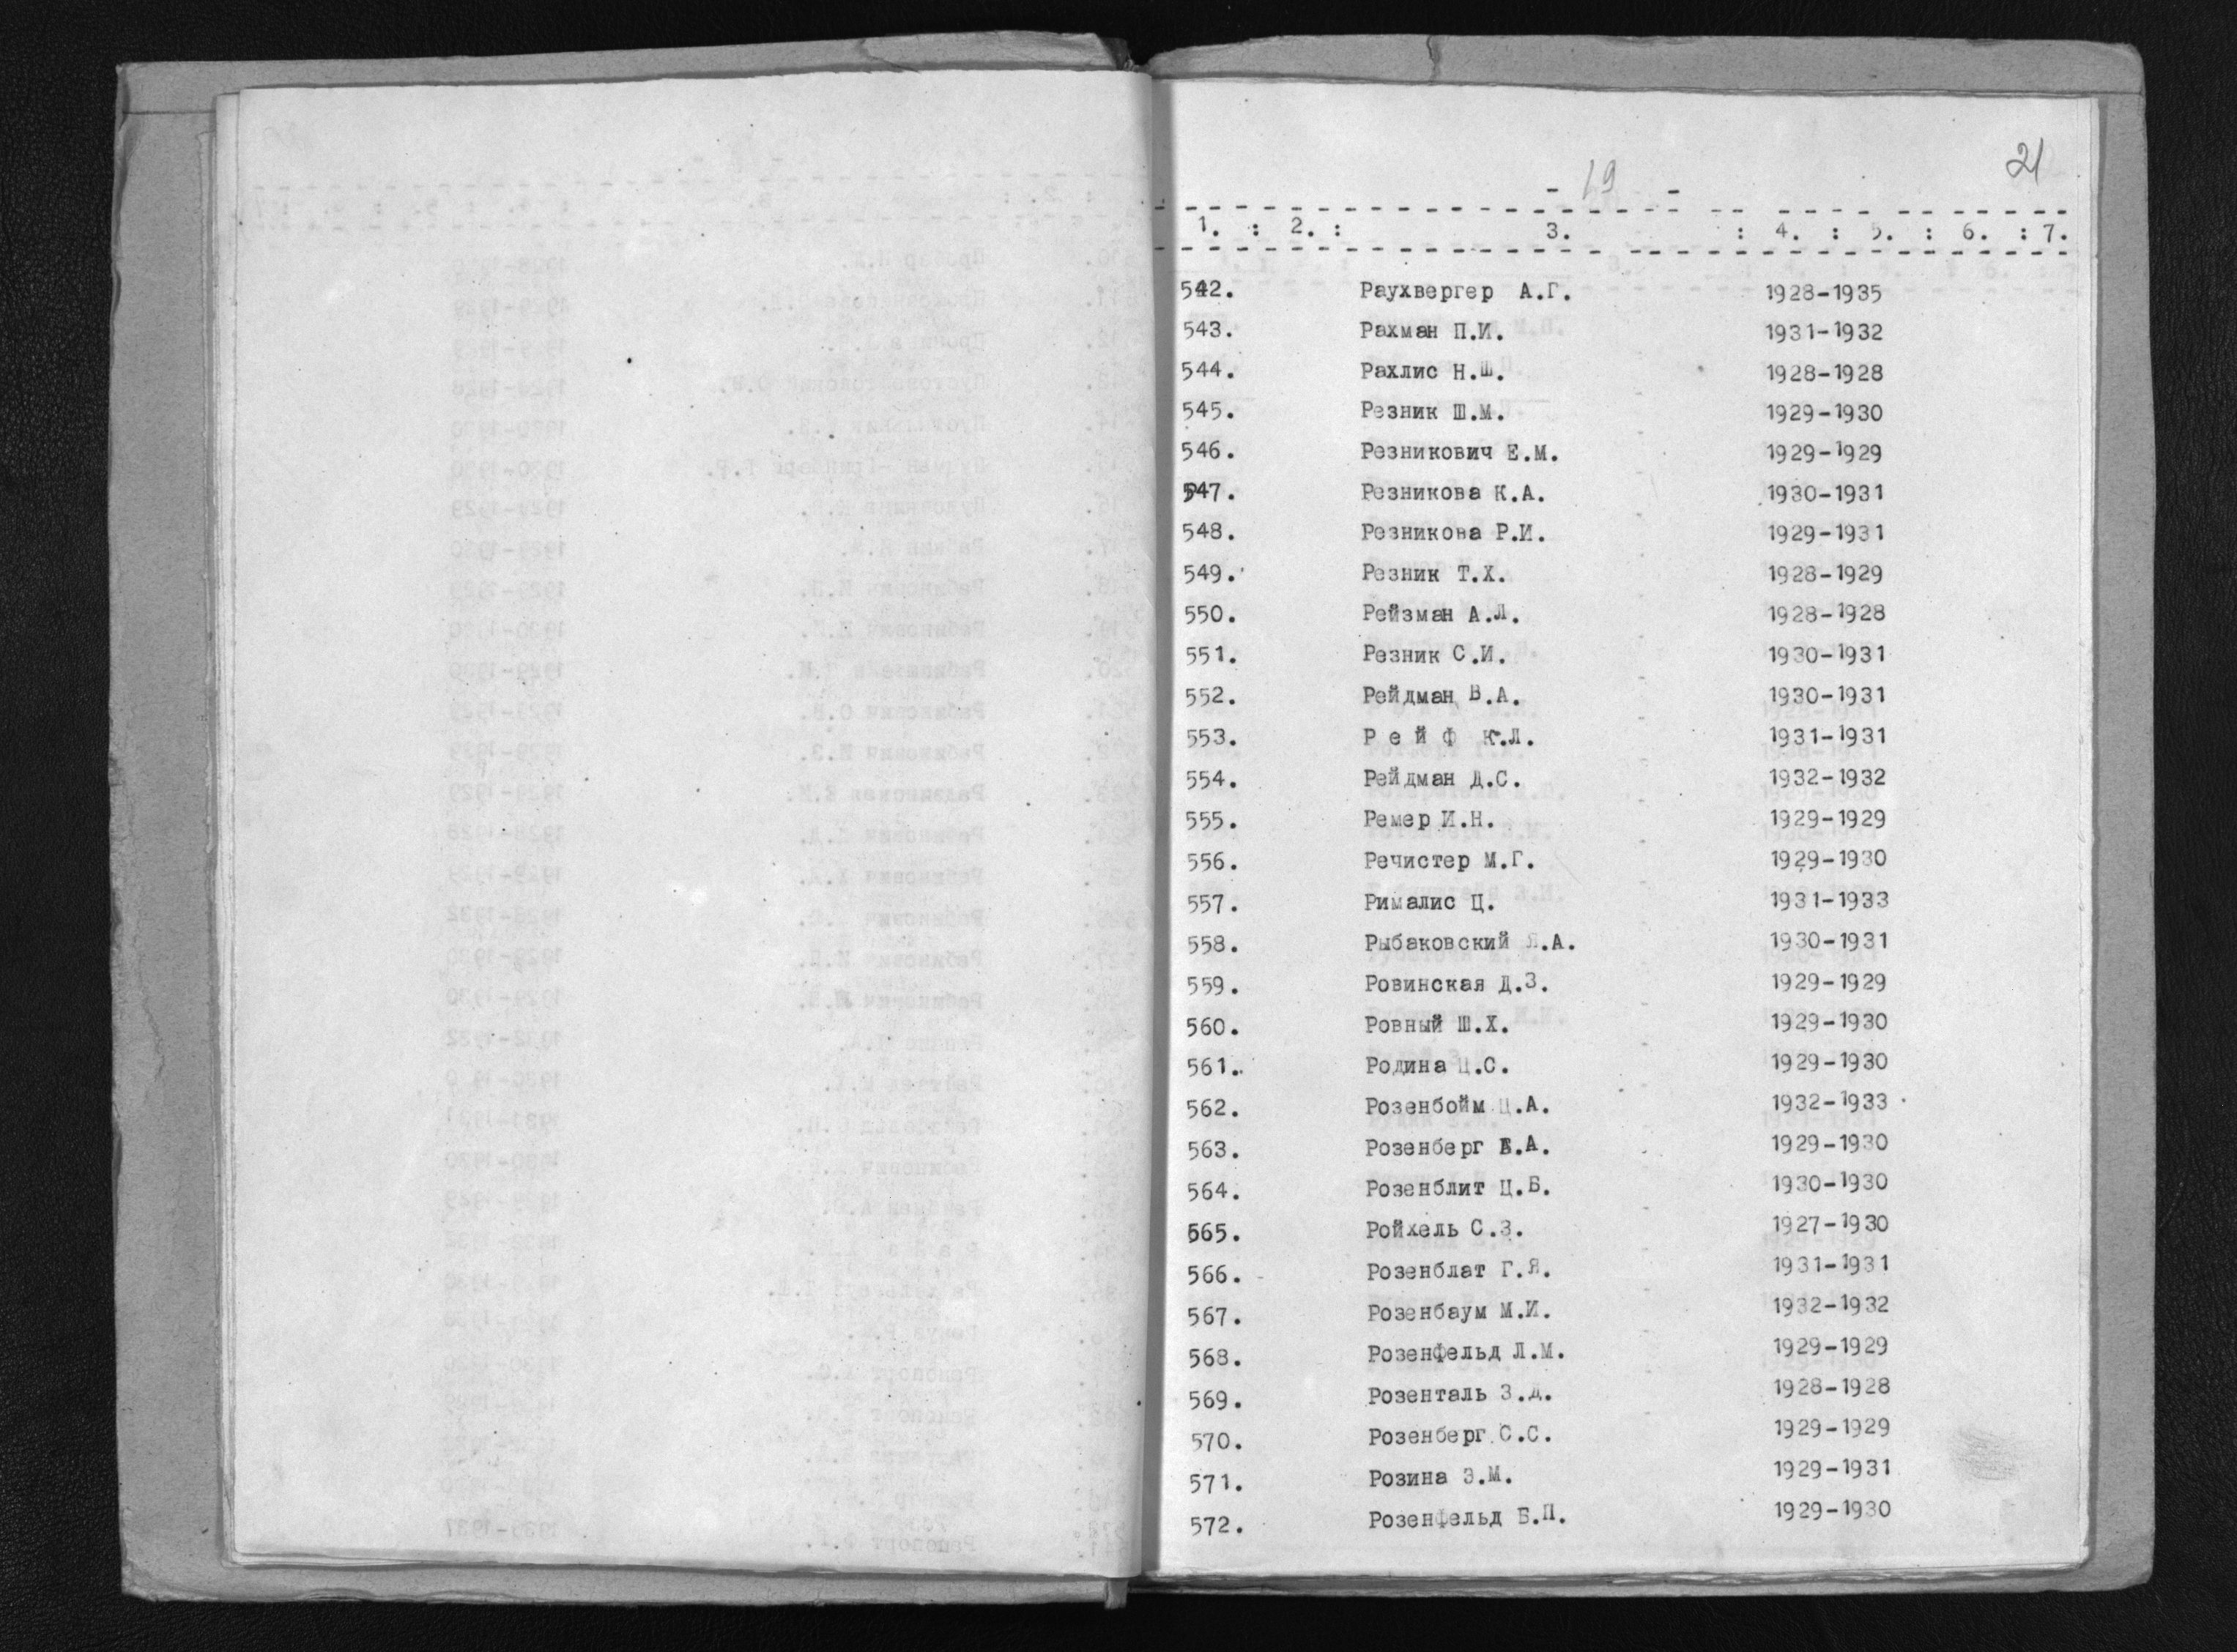 21
- 19 -
1. : 2. : 3. : 4. : 5. : 6. : 7.
542. Раухвергер А.Г. 1928-1935
543. Рахман П.И. 1931-1932
544. Рахлис Н.Ш. 1928-1928
545. Резник Ш.М. 1929-1930
546. Резникович Е.М. 1929-1929
547. Резникова К.А. 1930-1931
548. Резникова Р.И. 1929-1931
549. Резник Т.Х. 1928-1929
550. Рейзман А.Л. 1928-1928
551. Резник С.И. 1930-1931
552. Рейдман В.А. 1930-1931
553. Р е й ф К.Л. 1931-1931
554. Рейдман Д.С. 1932-1932
555. Ремер И.Н. 1929-1929
556. Речистер М.Г. 1929-1930
557. Рималис Ц. 1931-1933
558. Рыбаковский Я.А. 1930-1931
559. Ровинская Д.З. 1929-1929
560. Ровный Ш.Х. 1929-1930
561. Родина Ц.С. 1929-1930
562. Розенбойм Ц.А. 1932-1933
563. Розенберг Е.А. 1929-1930
564. Розенблит Ц.Б. 1930-1930
565. Ройхель С.З. 1927-1930
566. Розенблат Г.Я. 1931-1931
567. Розенбаум М.И. 1932-1932
568. Розенфельд Л.М. 1929-1929
569. Розенталь З.Д. 1928-1928
570. Розенберг С.С. 1929-1929
571. Розина Э.М. 1929-1931
572. Розенфельд Б.П. 1929-1930